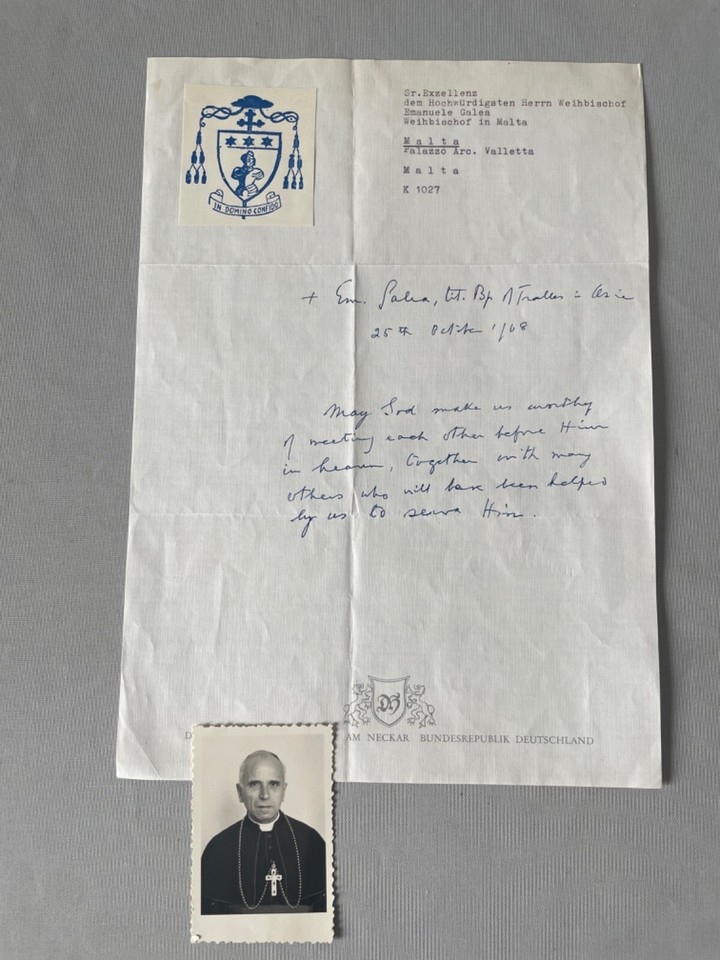 IN DOMINO CONFIDO
Sr.Exzellenz
dem Hochwürdigsten Herrn Weihbischof
Emanuele Galea
Weihbischof in Malta
Malta
Palazzo Arc. Valletta
Malta
K 1027
+ Em. Galea, tit. Bp of Tralles in Asia
25th October 1968
May God make us worthy
of meeting each other before Him
in heaven, together with many
others who will have been helped
by us to serve Him.
DB
AM NECKAR BUNDESREPUBLIK DEUTSCHLAND